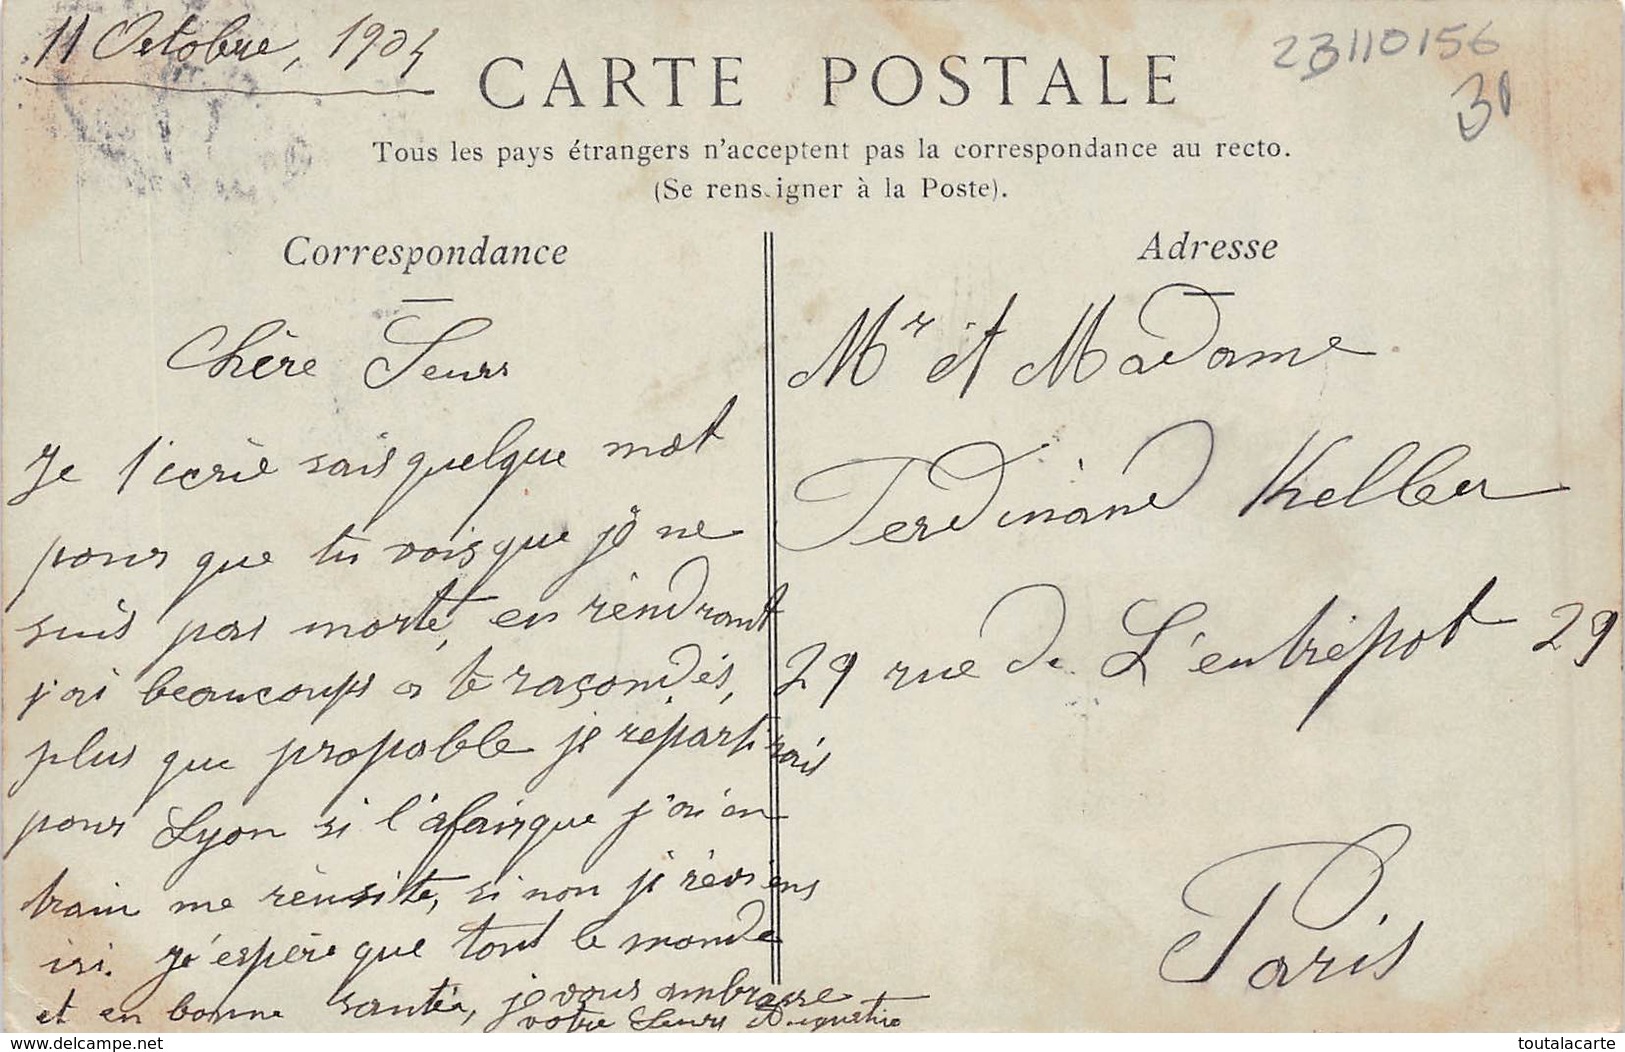 11 Octobre, 1904
23110156
30
CARTE POSTALE
Tous les pays étrangers n'acceptent pas la correspondance au recto.
(Se renseigner à la Poste).
Correspondance
Adresse
Chère Seurs
Je t'ecrie sais quelque mot
pour que tu vois que je ne
suis pas morte, en rendrant
j'ai beaucoups a te raçondés,
plus que propable je répartirais
pour Lyon si l'afairque j'ai en
train me réusite, si non je réviens
isi. J'éspère que tout le monde
et en bonne santée, je vous ambrasse
votre Seurs Augustine
Mr et Madame
Ferdinand Keller
29 rue de L'entrépot 29
Paris
delcampe.net
toutalacarte